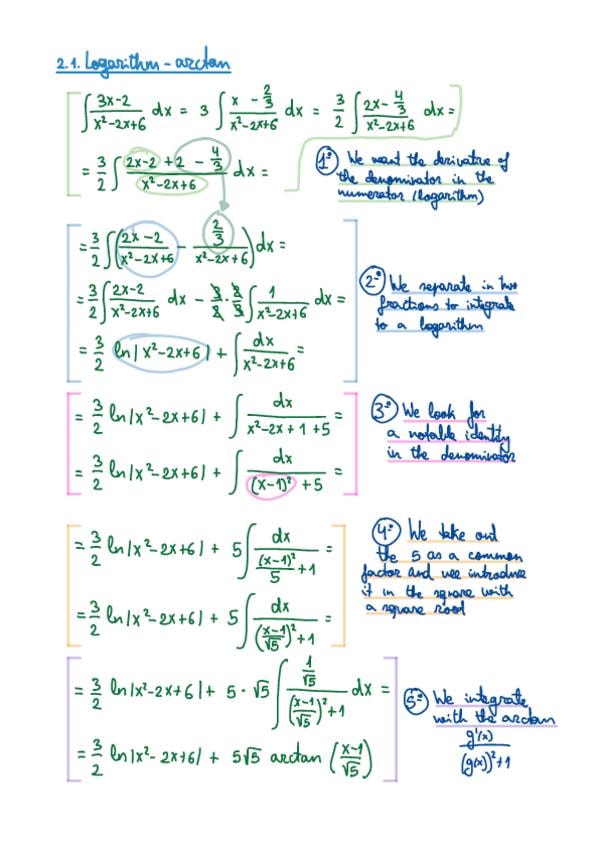 2.1. Logarithm - arctan
∫ (3x-2)/(x²-2x+6) dx = 3 ∫ (x - 2/3)/(x²-2x+6) dx = 3/2 ∫ (2x - 4/3)/(x²-2x+6) dx =
= 3/2 ∫ (2x-2+2 - 4/3)/(x²-2x+6) dx =
1º We want the derivative of
the denominator in the
numerator (logarithm)
= 3/2 ∫ ((2x-2)/(x²-2x+6) - (2/3)/(x²-2x+6)) dx =
= 3/2 ∫ (2x-2)/(x²-2x+6) dx - 3/2 · 2/3 ∫ 1/(x²-2x+6) dx =
= 3/2 ln|x²-2x+6| + ∫ dx/(x²-2x+6) =
2º We separate in two
fractions to integrate
to a logarithm
= 3/2 ln|x²-2x+6| + ∫ dx/(x²-2x+1+5) =
= 3/2 ln|x²-2x+6| + ∫ dx/((x-1)²+5) =
3º We look for
a notable identity
in the denominator
= 3/2 ln|x²-2x+6| + 5 ∫ dx/((x-1)²/5 + 1) =
= 3/2 ln|x²-2x+6| + 5 ∫ dx/(((x-1)/√5)² + 1) =
4º We take out
the 5 as a common
factor and we introduce
it in the square with
a square root
= 3/2 ln|x²-2x+6| + 5 · √5 ∫ (1/√5)/(((x-1)/√5)² + 1) dx =
= 3/2 ln|x²-2x+6| + 5√5 arctan ((x-1)/√5)
5º We integrate
with the arctan
g'(x)/((g(x))²+1)